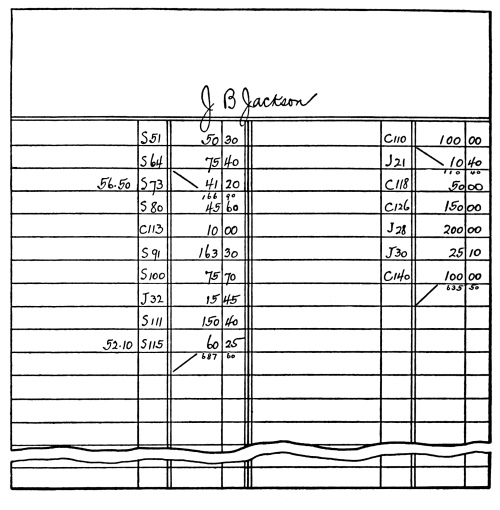 J B Jackson
S51 50 30 C110 100 00
S64 75 40 J21 10 40
110 40
56.50 S73 41 20 C118 50 00
166 90
S80 45 60 C126 150 00
C113 10 00 J28 200 00
S91 163 30 J30 25 10
S100 75 70 C140 100 00
635 50
J32 15 45
S111 150 40
52.10 S115 60 25
687 60